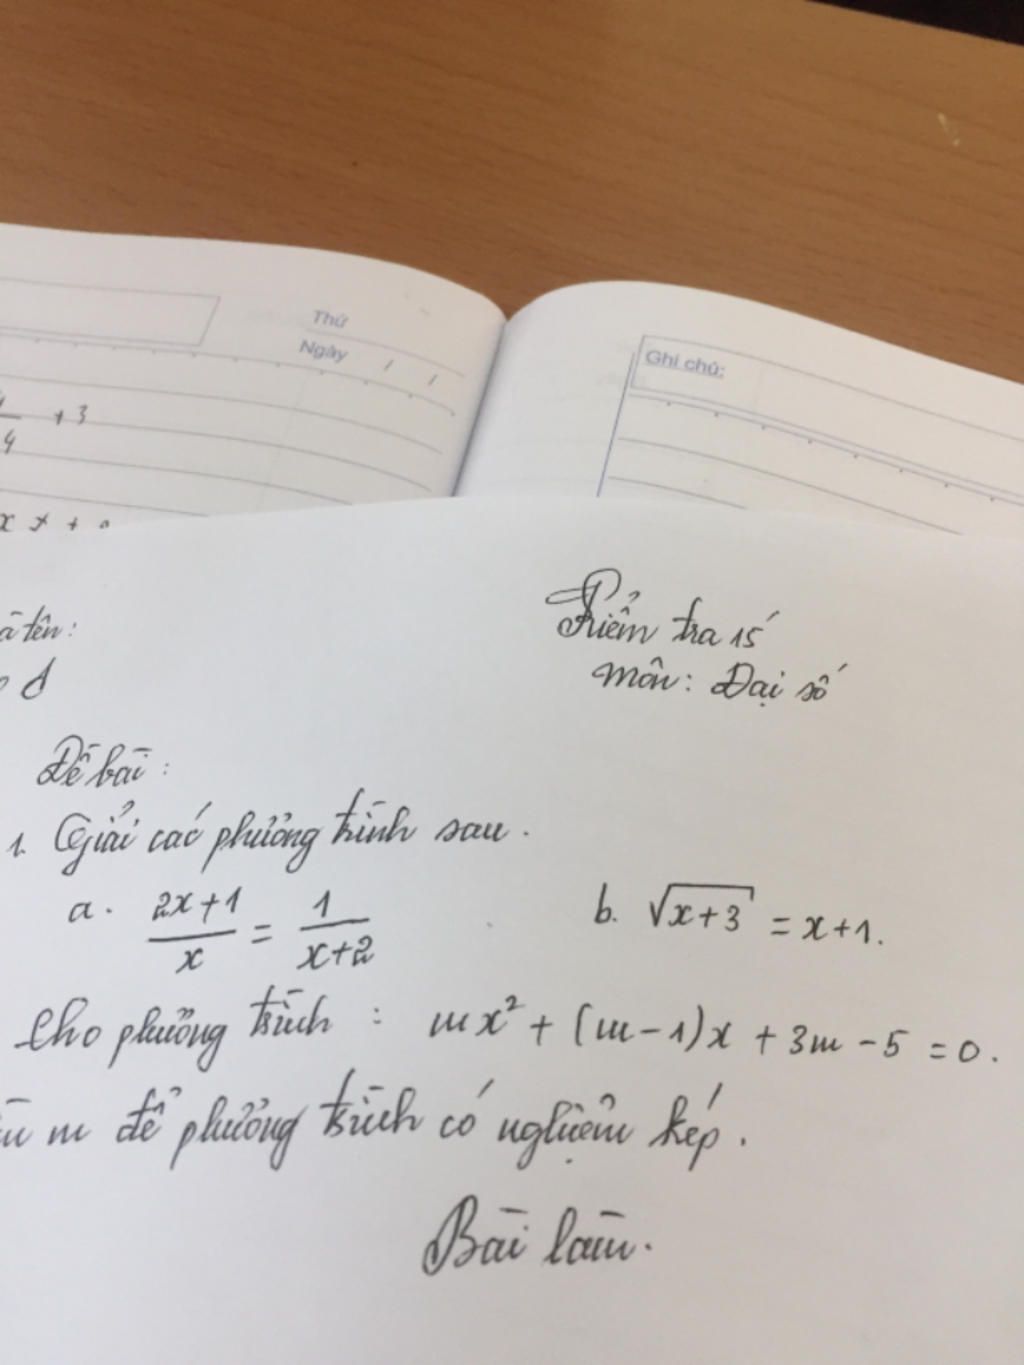 Thứ
Ngày / /
Ghi chú:
4 + 3
x x +
tên:
Kiểm tra 15'
Môn: Đại số
Đề bài:
1. Giải các phương trình sau.
a. (2x+1)/x = 1/(x+2)
b. √(x+3) = x+1.
Cho phương trình : mx² + (m-1)x + 3m - 5 = 0.
m để phương trình có nghiệm kép.
Bài làm.